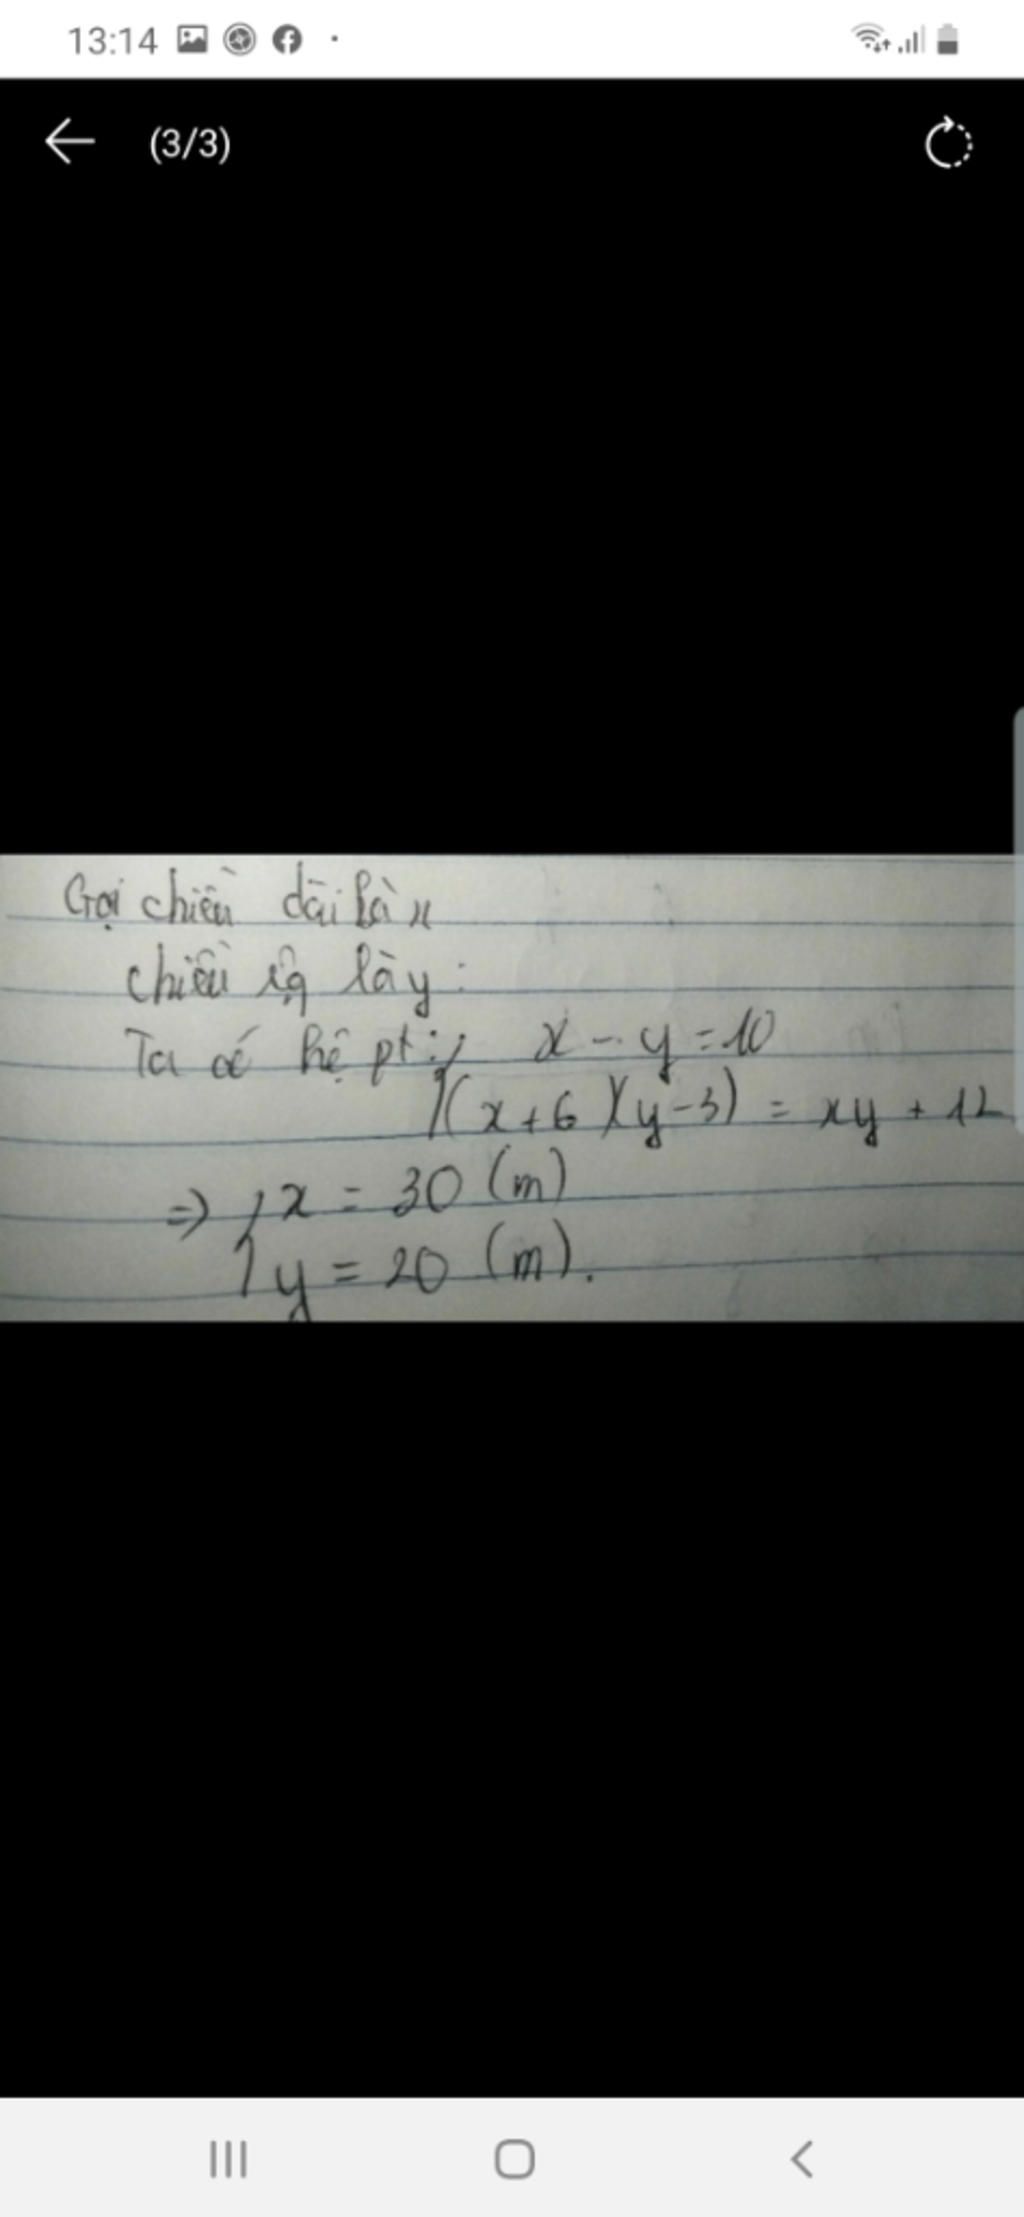 13:14
(3/3)
Gọi chiều dài là x
chiều rộng là y:
Ta có hệ pt: x - y = 10
(x+6)(y-3) = xy + 12
=> x = 30 (m)
y = 20 (m).